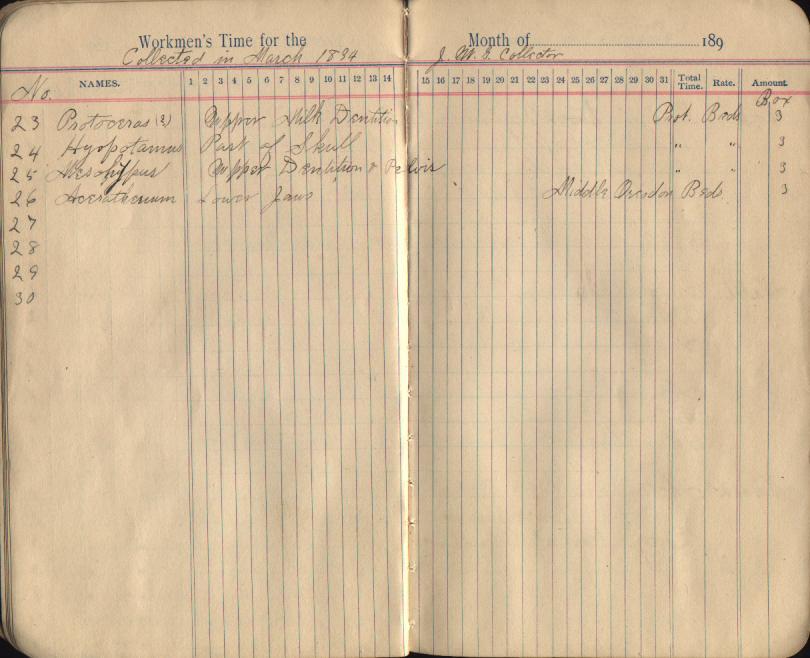 Workmen's Time for the Month of 189
Collected in March 1894 J. W. G. Collector
No. NAMES. 1 2 3 4 5 6 7 8 9 10 11 12 13 14 15 16 17 18 19 20 21 22 23 24 25 26 27 28 29 30 31 Total Time. Rate. Amount.
Box
23 Protoceras (?) Upper Milk Dentition Prot. Beds 3
24 Hyopotamus Part of Skull " " 3
25 Mesohippus Upper Dentition & Pelvis " " 3
26 Aceratherium Lower Jaws Middle Oreodon Beds 3
27
28
29
30